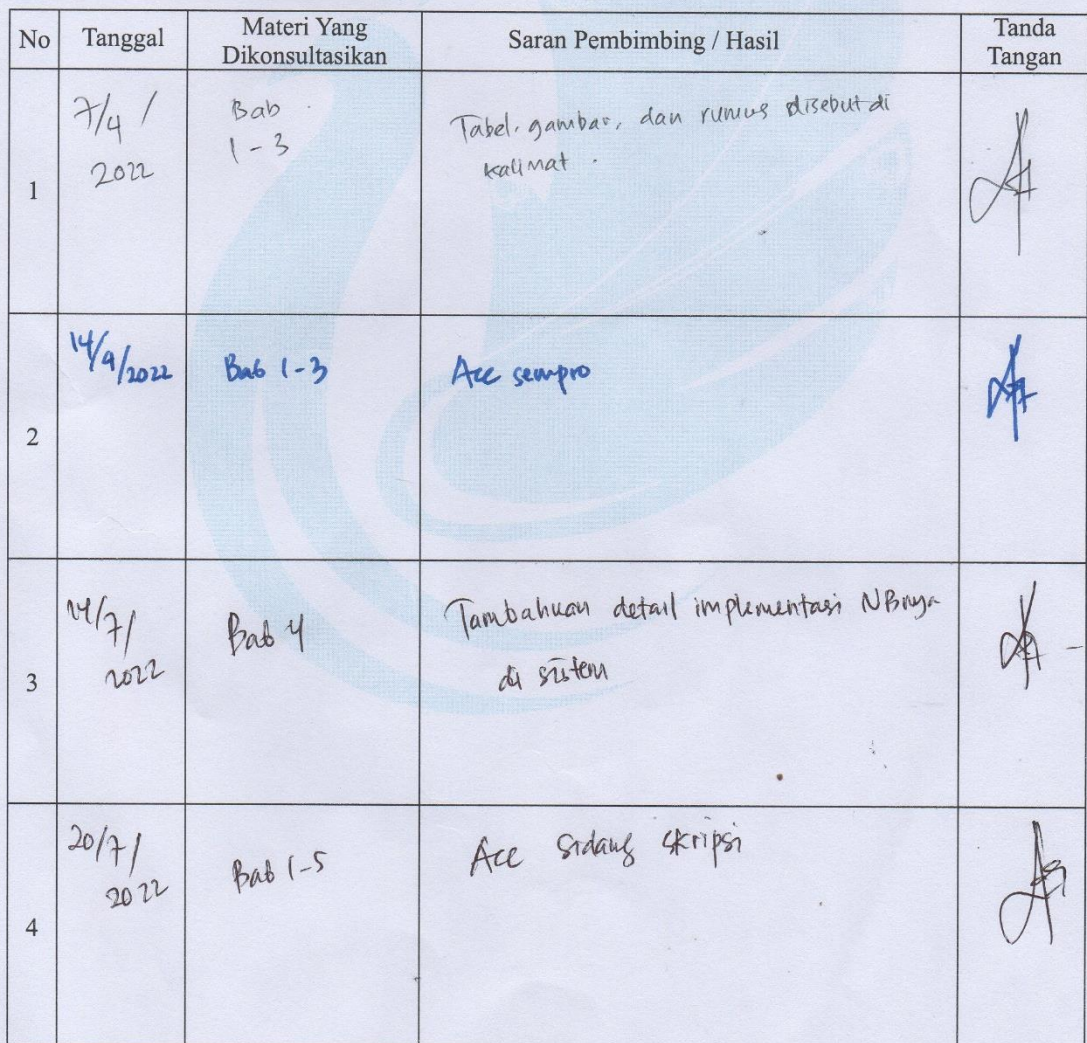 No
Tanggal
Materi Yang
Dikonsultasikan
Saran Pembimbing / Hasil
Tanda
Tangan
1
7/4 /
2022
Bab
1-3
Tabel, gambar, dan rumus disebut di
kalimat.
2
14/4/2022
Bab 1-3
Acc sempro
3
14/7/
2022
Bab 4
Tambahkan detail implementasi NBnya
di sistem
4
20/7/
2022
Bab 1-5
Acc sidang skripsi